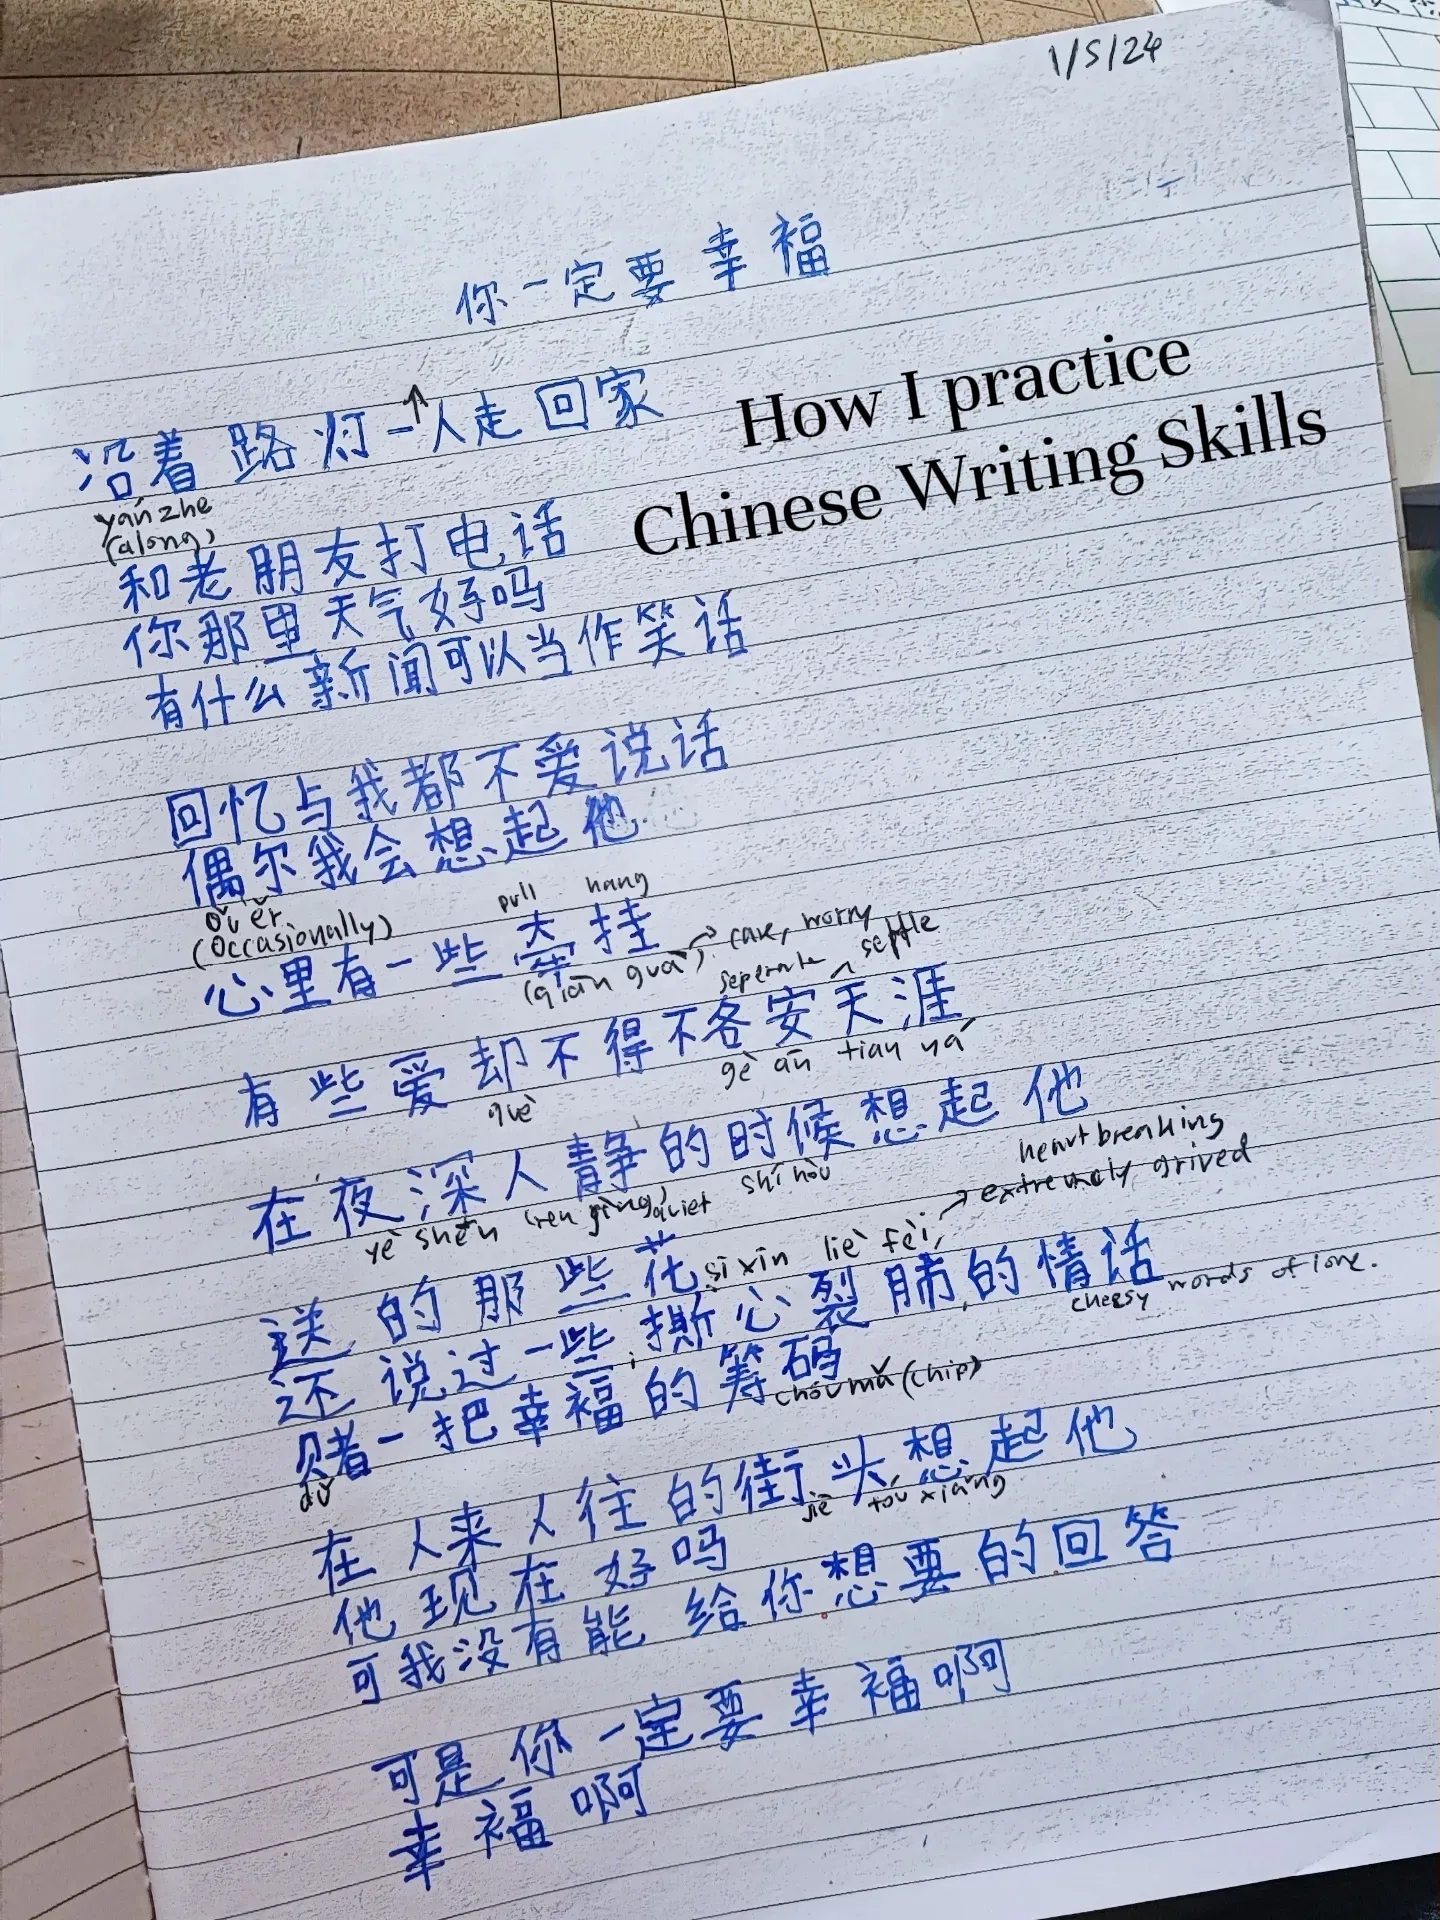 1/5/24
你一定要幸福
How I practice
Chinese Writing Skills
沿着路灯一↑人走回家
yán zhe
(along)
和老朋友打电话
你那里天气好吗
有什么新闻可以当作笑话
回忆与我都不爱说话
偶尔我会想起他
ǒu ěr
(occasionally)
pull hang
心里有一些牵挂
(qiān guà) → care, worry
seperate settle
有些爱却不得不各安天涯
què gè ān tian yá
在夜深人静的时候想起他
yè shēn (ren jìng) quiet shí hòu
heartbreaking
→ extremely grived
送的那些花
sī xīn liè fèi
还说过一些撕心裂肺的情话
cheesy words of love.
赌一把幸福的筹码
dǔ chóu mǎ (chip)
在人来人往的街头想起他
jiē tóu xiǎng
他现在好吗
可我没有能给你想要的回答
可是你一定要幸福啊
幸福啊